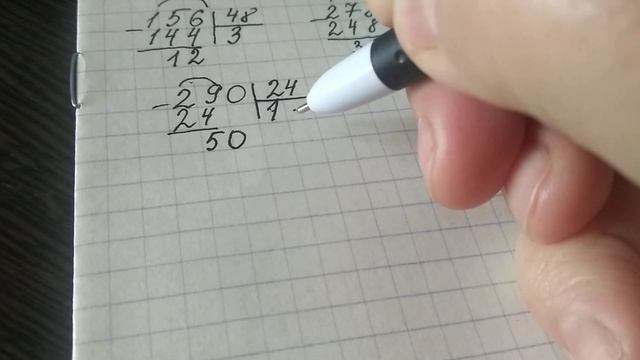 156 48
144 3
12
27
248
290 24
24 1
50